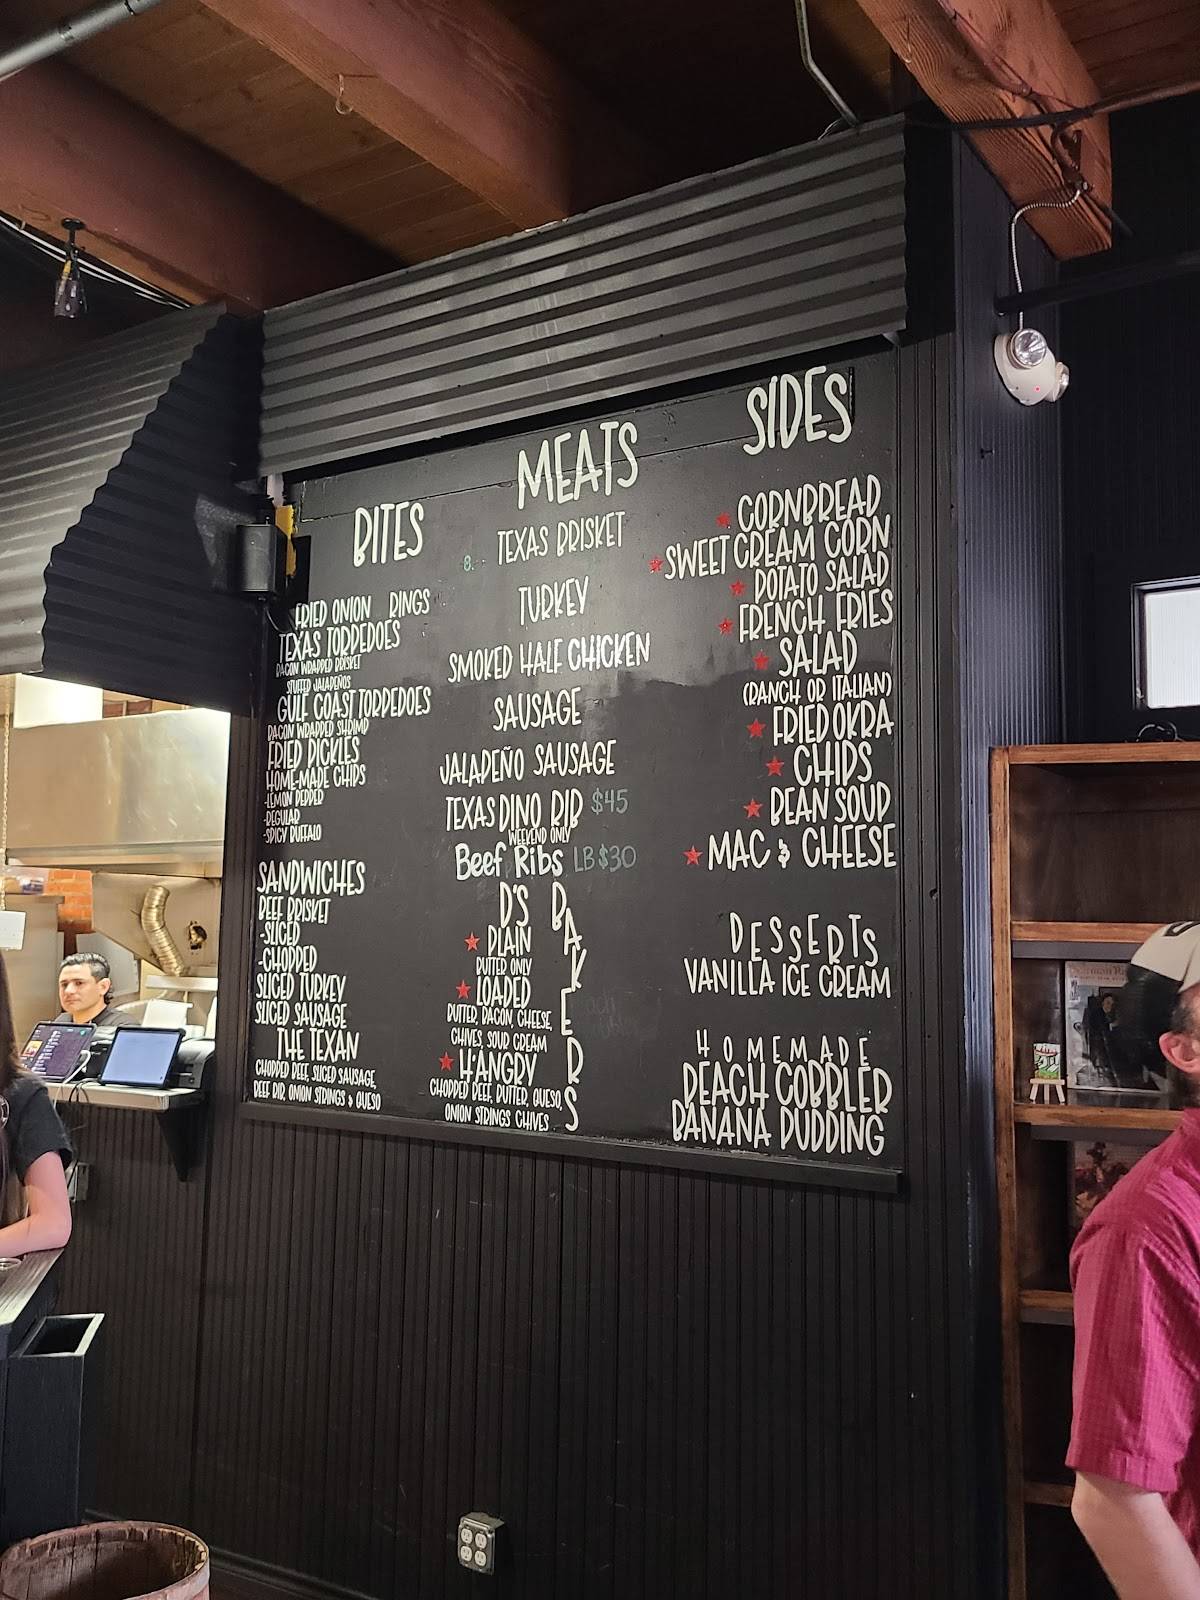 BITES
FRIED ONION RINGS
TEXAS TORPEDOES
BACON WRAPPED BRISKET
STUFFED JALAPEÑOS
GULF COAST TORPEDOES
BACON WRAPPED SHRIMP
FRIED PICKLES
HOME-MADE CHIPS
-LEMON PEPPER
-REGULAR
-SPICY BUFFALO
SANDWICHES
BEEF BRISKET
-SLICED
-CHOPPED
SLICED TURKEY
SLICED SAUSAGE
THE TEXAN
CHOPPED BEEF, SLICED SAUSAGE,
BEEF RIB, ONION STRINGS & QUESO
MEATS
TEXAS BRISKET
TURKEY
SMOKED HALF CHICKEN
SAUSAGE
JALAPEÑO SAUSAGE
TEXAS DINO RIB $45
WEEKEND ONLY
Beef Ribs LB $30
D'S BAKERS
PLAIN
BUTTER ONLY
LOADED
BUTTER, BACON, CHEESE,
CHIVES, SOUR CREAM
H'ANGRY
CHOPPED BEEF, BUTTER, QUESO,
ONION STRINGS CHIVES
SIDES
CORNBREAD
SWEET CREAM CORN
POTATO SALAD
FRENCH FRIES
SALAD
(RANCH OR ITALIAN)
FRIED OKRA
CHIPS
BEAN SOUP
MAC & CHEESE
DESSERTS
VANILLA ICE CREAM
HOMEMADE
PEACH COBBLER
BANANA PUDDING